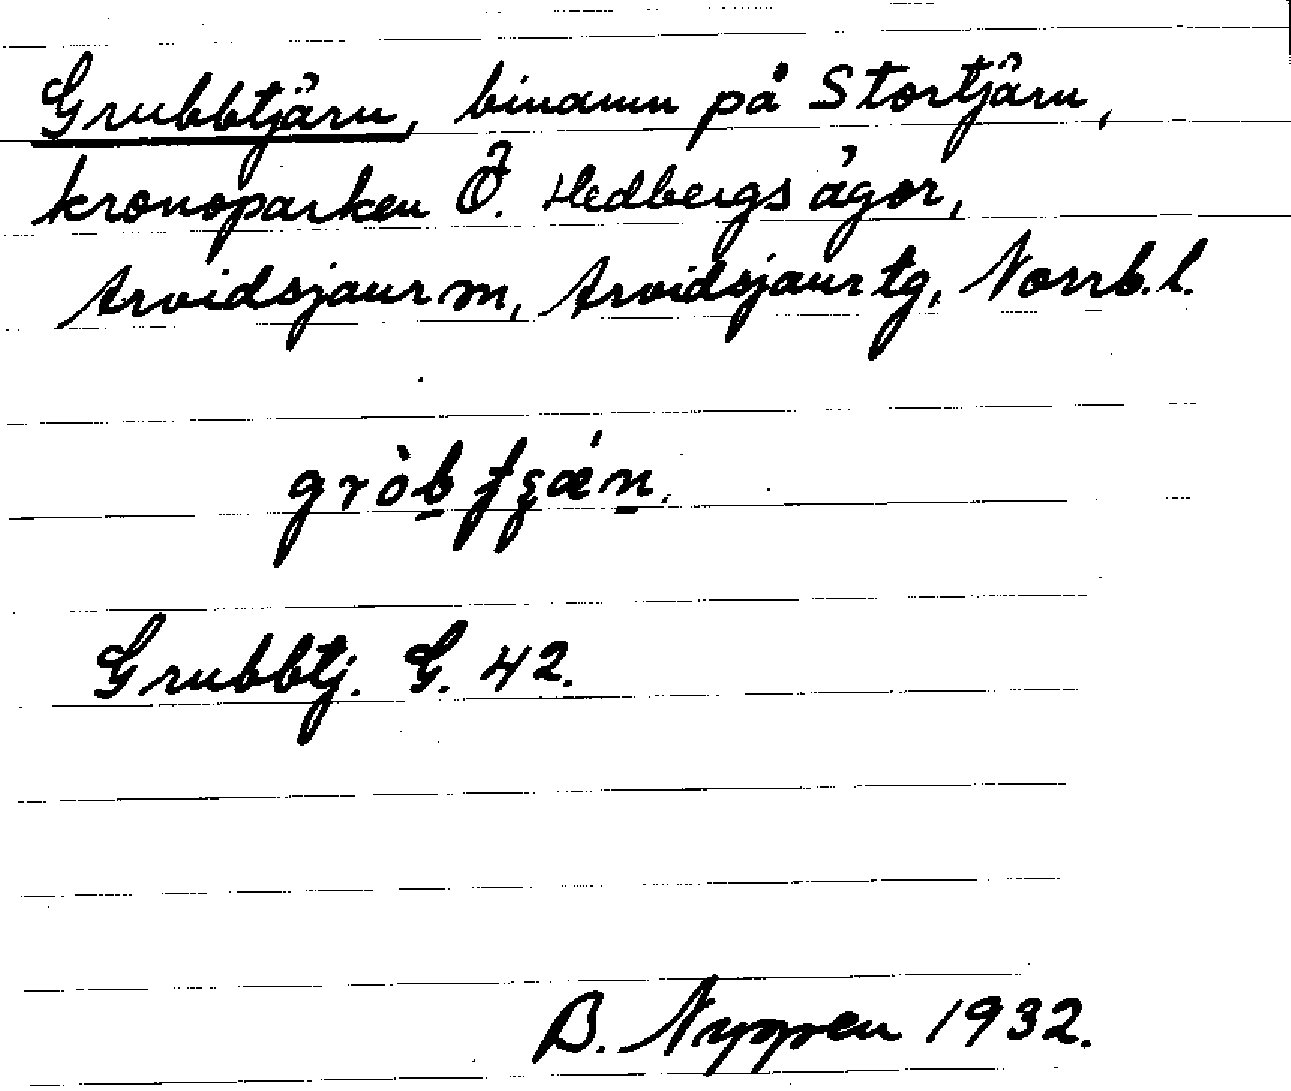 Grubbtjärn, binamn på Stortjärn,
kronoparken Ö. Hedbergs ägor,
Arvidsjaur m, Arvidsjaur tg, Norrb. l.
Grubbtj. G. 42.
B. Nygren 1932.